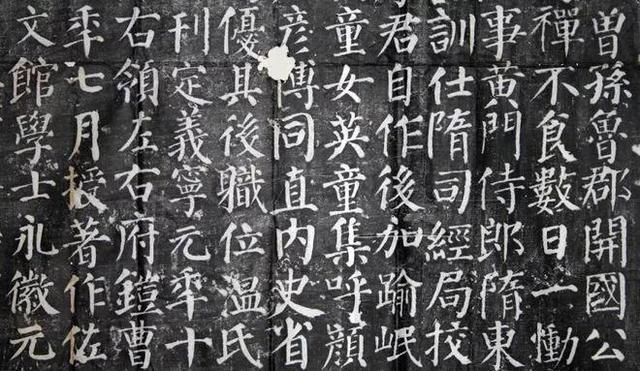 曾孫魯郡開國公
禪不食數日一慟
事黃門侍郎隋東
訓仕隋司經局挍
君自作後加踰岷
童女英童集呼顏
彦博同直内史省
優其後職位温氏
刊定義寧元年十
右領左右府鎧曹
年七月授著作佐
文館學士永徽元